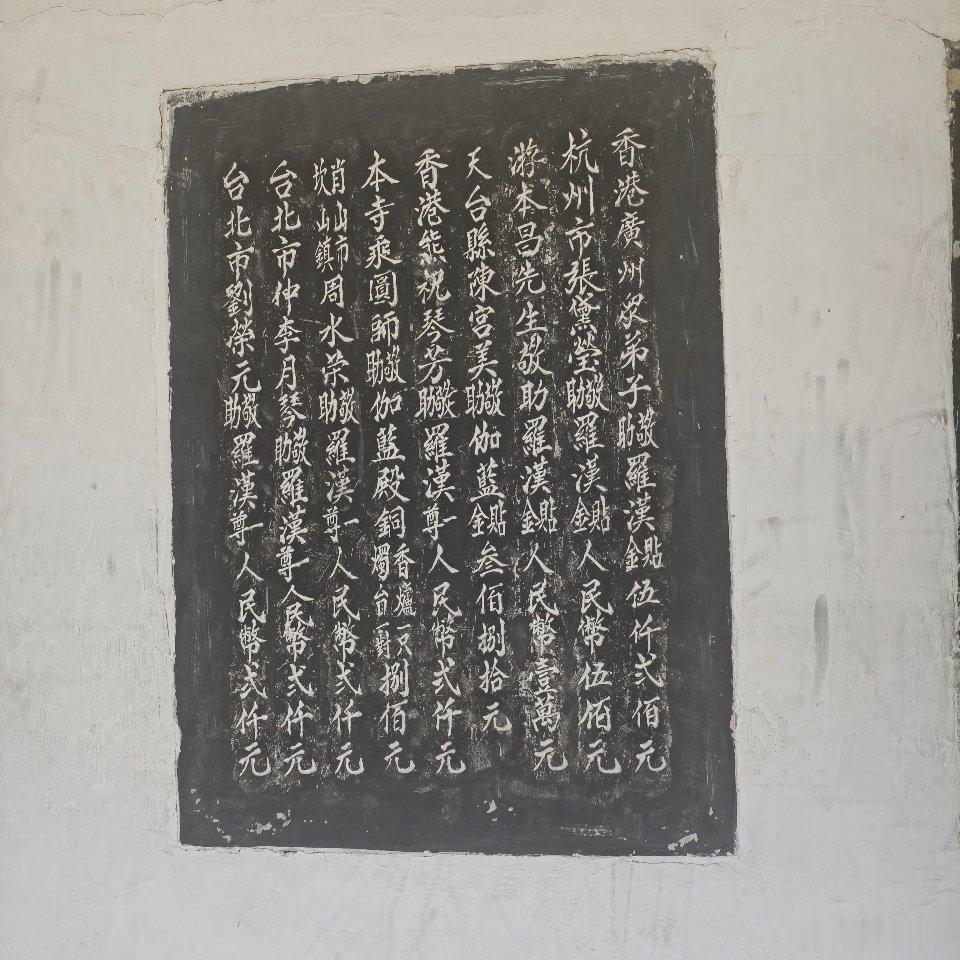 香港廣州衆弟子敬助羅漢貼金伍仟弍佰元
杭州市張黛瑩敬助羅漢貼金人民幣伍佰元
游本昌先生敬助羅漢貼金人民幣壹萬元
天台縣陳宮美敬助伽藍貼金叁佰捌拾元
香港熊祝琴芳敬助羅漢一尊人民幣弍仟元
本寺乘圓師敬助伽藍殿銅香爐一只燭台一對捌佰元
肖山市坎山鎮周水荣敬助羅漢一尊人民幣弍仟元
台北市仲李月琴敬助羅漢一尊人民幣弍仟元
台北市劉榮元敬助羅漢一尊人民幣弍仟元